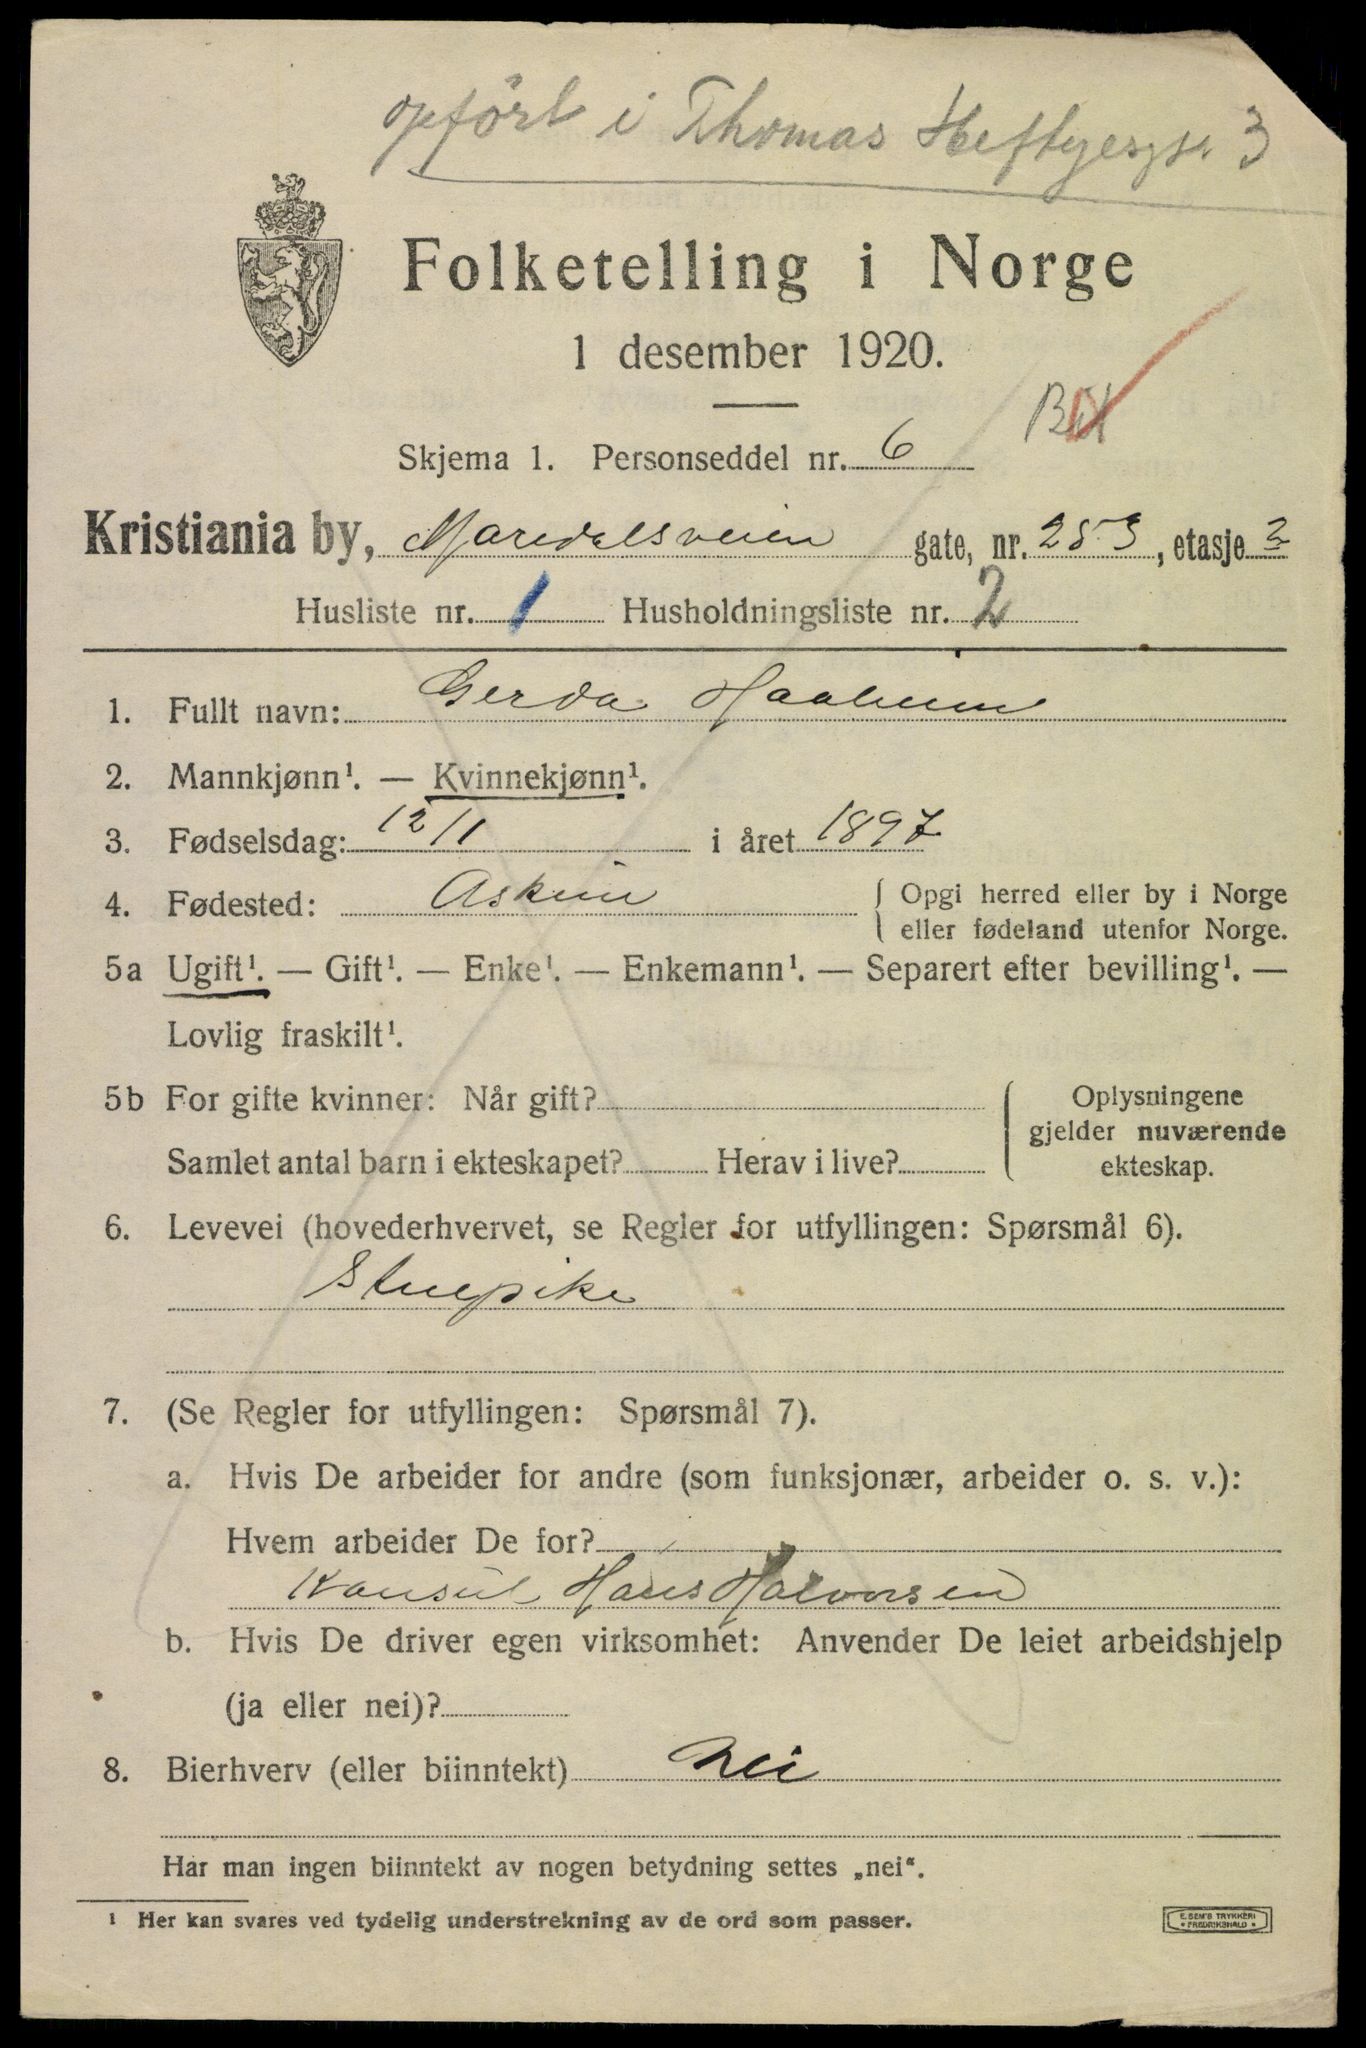 opført i Thomas Heftyesgt. 3
Folketelling i Norge
1 desember 1920.
Skjema 1. Personseddel nr. 6
Kristiania by, Maridalsveien gate, nr. 253, etasje 2
Husliste nr. 1 Husholdningsliste nr. 2
1. Fullt navn: Gerda Haaheim
2. Mannkjønn¹. — Kvinnekjønn¹.
3. Fødselsdag: 12/1 i året 1897
4. Fødested: Askim { Opgi herred eller by i Norge
eller fødeland utenfor Norge.
5a Ugift¹. — Gift¹. — Enke¹. — Enkemann¹. — Separert efter bevilling¹. —
Lovlig fraskilt¹.
5b For gifte kvinner: Når gift? { Oplysningene
gjelder nuværende
Samlet antal barn i ekteskapet? Herav i live? ekteskap.
6. Levevei (hovederhvervet, se Regler for utfyllingen: Spørsmål 6).
Stuepike
7. (Se Regler for utfyllingen: Spørsmål 7).
a. Hvis De arbeider for andre (som funksjonær, arbeider o. s. v.):
Hvem arbeider De for?
Konsul Hans Halvorsen
b. Hvis De driver egen virksomhet: Anvender De leiet arbeidshjelp
(ja eller nei)?
8. Bierhverv (eller biinntekt) Nei
Har man ingen biinntekt av nogen betydning settes „nei“.
¹ Her kan svares ved tydelig understrekning av de ord som passer.
E. SEM'S TRYKKERI
FREDRIKSHALD